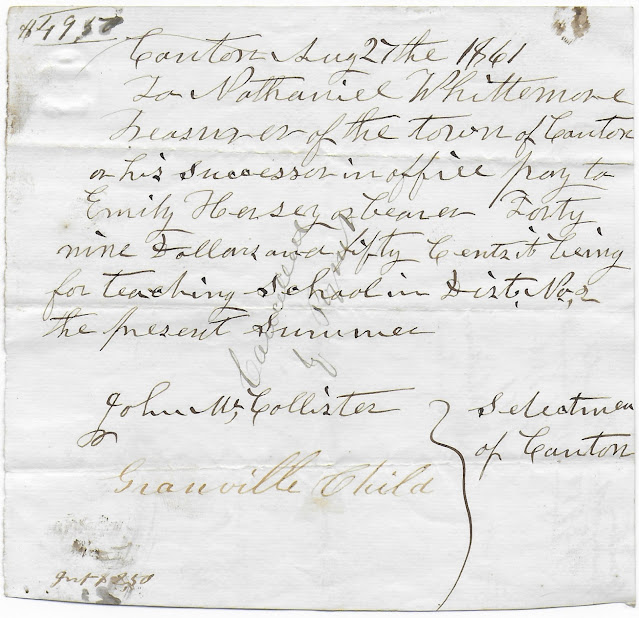 $49,50
Canton Aug 27 the 1861
To Nathaniel Whittemore
Treasurer of the town of Canton
or his successor in office pay to
Emily Hersey or bearer Forty
nine Dollars and fifty Cents it being
for teaching School in Dist. No, 2
the present Summer
John Mc Collister
Granville Child
Selectmen
of Canton
by